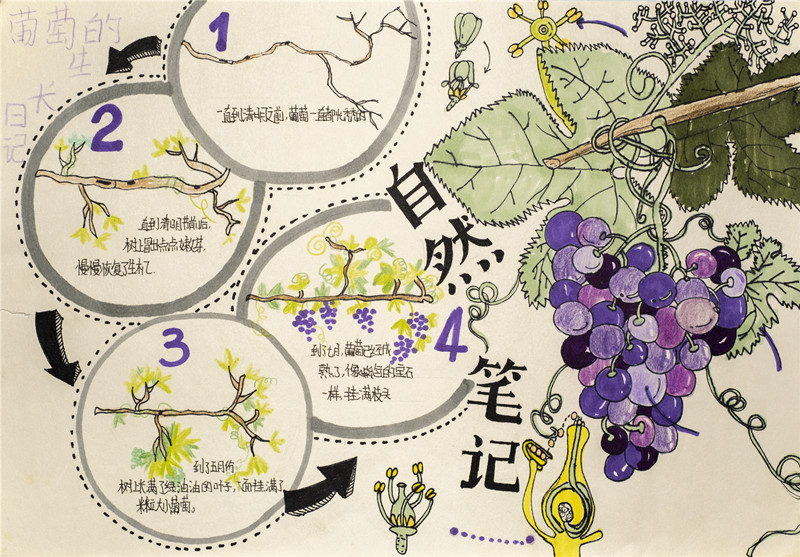 葡萄的
生
长
日记
1
一直到清明之前,葡萄一直都光秃秃的
2
直到清明节前后,
树上冒出点点嫩芽,
慢慢恢复了生机了.
3
到了五月份
树上长满了绿油油的叶子,下面挂满了
米粒大小葡萄。
4
到了七月,葡萄已经成
熟了,像紫色的宝石
一样,挂满枝头
自然
笔记